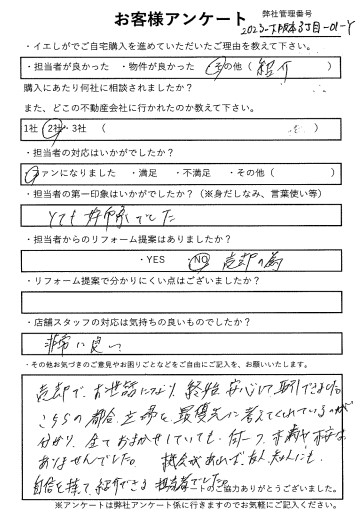 お客様アンケート
弊社管理番号
・イエしがでご自宅購入を進めていただいたご理由を教えて下さい。
・担当者が良かった ・物件が良かった ・その他( 紹介 )
購入にあたり何社に相談されましたか?
また、どこの不動産会社に行かれたのか教えて下さい。
1社 2社・3社 ( )
・担当者の対応はいかがでしたか?
・ファンになりました ・満足 ・不満足 ・その他( )
・担当者の第一印象はいかがでしたか?(※身だしなみ、言葉使い等)
とても好印象でした
・担当者からのリフォーム提案はありましたか?
・YES ・NO 売却の為
・リフォーム提案で分かりにくい点はございましたか?
・店舗スタッフの対応は気持ちの良いものでしたか?
非常に良い
・その他お気づきのご意見やお困りごとなどをご自由にご記入を、お願いいたします。
売却でお世話になり、終始、安心して取引できました。
こちらの都合、立場を、最優先に考えてくれているのが
分かり、全ておまかせしていても、何一つ、不満や不安は
ありませんでした。 機会があれば、友人、知人にも
自信を持って紹介できる 担当者でした。
アンケートのご協力ありがとうございました。
※アンケートは弊社アンケート係に行きますのでお気軽にご記入ください。